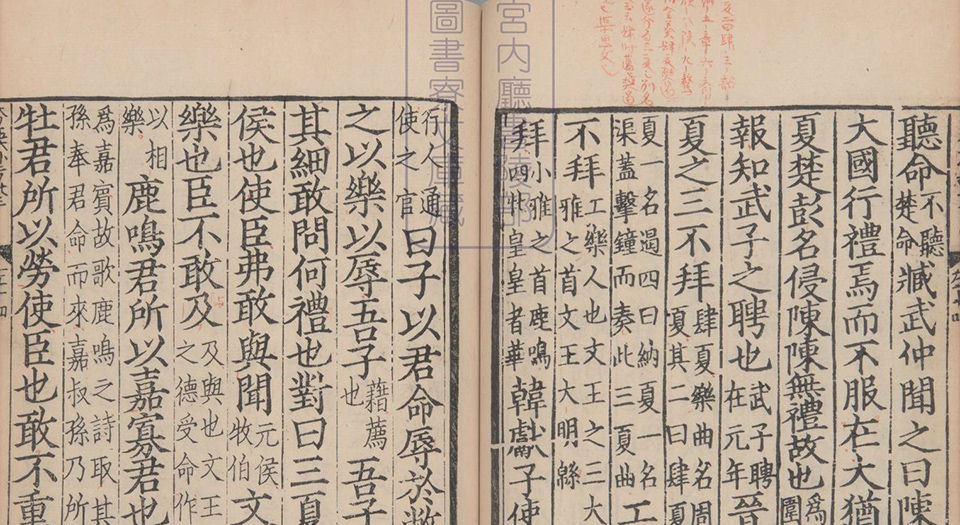 聽命不聽楚命臧武仲聞之曰陳
大國行禮焉而不服在大猶
夏楚彭名侵陳陳無禮故也為圍
報知武子之聘也武子聘在元年晉
夏之三不拜肆夏樂曲名周夏其二曰肆夏
夏一名遏四曰納夏一名渠蓋擊鐘而奏此三夏曲工
不拜工樂人也文王之三大雅之首文王大明緜
拜小雅之首鹿鳴四牡皇皇者華韓獻子使
行人通使之官曰子以君命辱於敝
之以樂以辱吾子藉薦也吾子
其細敢問何禮也對曰三夏
侯也使臣弗敢與聞元侯牧伯文
樂也臣不敢及及與也文王之德受命作
以相樂鹿鳴君所以嘉寡君也
為嘉賓故歌鹿鳴之詩取其孫奉君命而來嘉叔孫乃所
牡君所以勞使臣也敢不重
宮內廳書陵部
圖書寮文庫藏